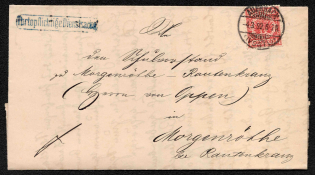 Portopflichtige Dienstsache
An
den Schulvorstand
zu Morgenröthe - Rautenkranz
(Herrn von Oppen)
in
Morgenröthe
bei Rautenkranz